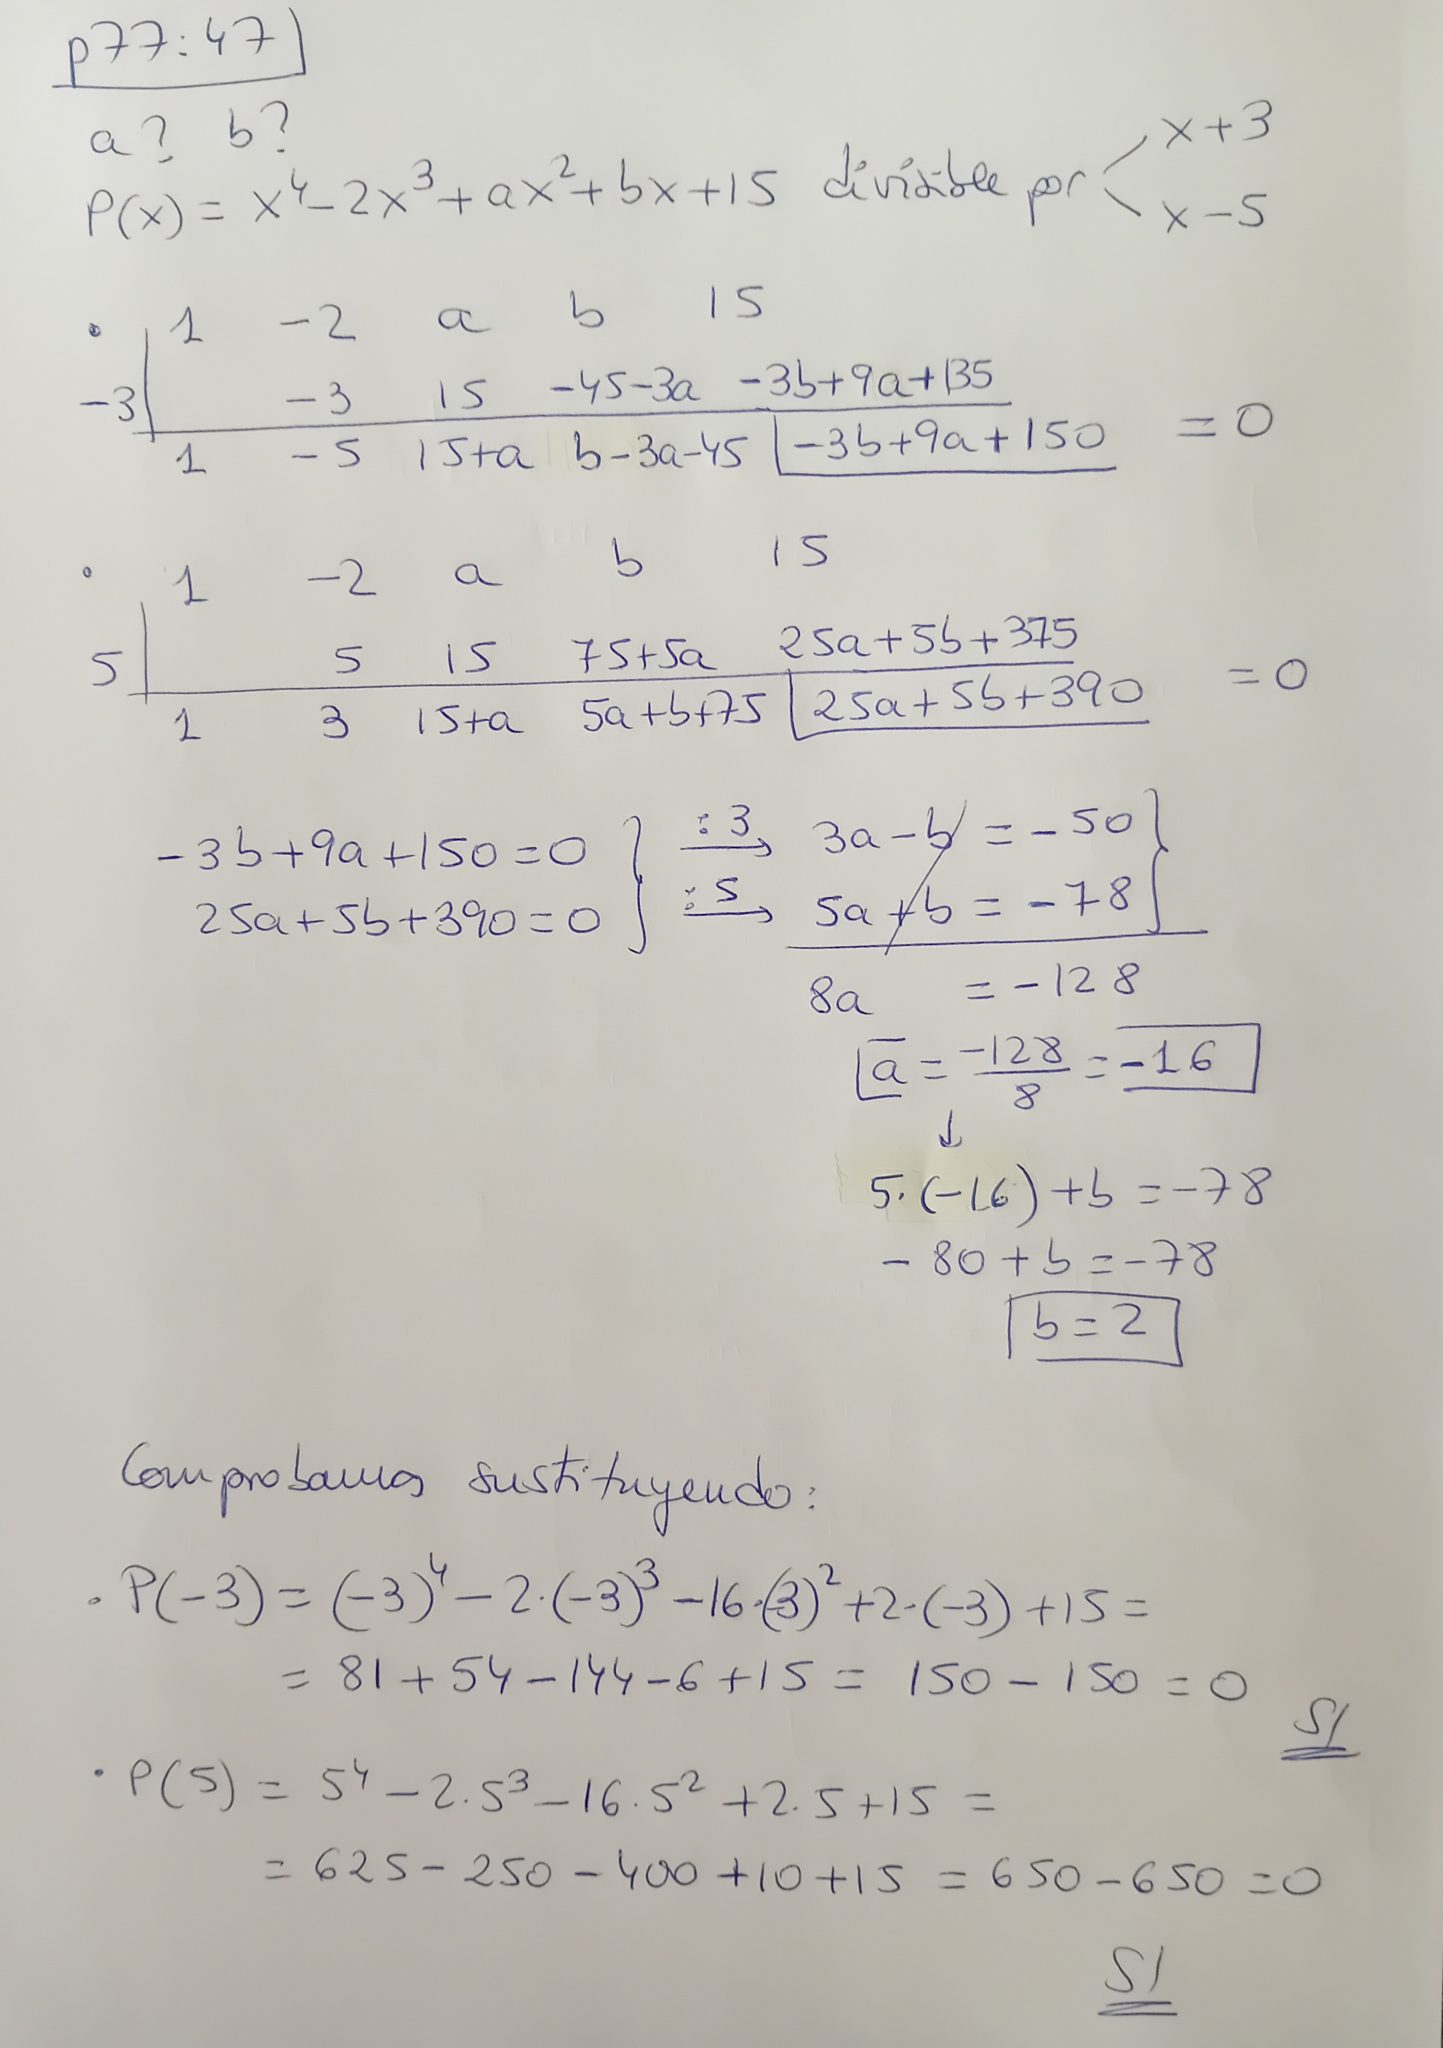 p77:47
a? b?
P(x) = x⁴-2x³+ax²+bx+15 divisible por
x+3
x-5
• 1 -2 a b 15
-3 -3 15 -45-3a -3b+9a+135
1 -5 15+a b-3a-45 -3b+9a+150 = 0
• 1 -2 a b 15
5 5 15 75+5a 25a+5b+375
1 3 15+a 5a+b+75 25a+5b+390 = 0
-3b+9a+150=0 :3 → 3a-b = -50
25a+5b+390=0 :5 → 5a+b = -78
8a = -128
a = -128/8 = -16
↓
5·(-16)+b = -78
-80+b = -78
b=2
Comprobamos sustituyendo:
• P(-3) = (-3)⁴-2·(-3)³-16·(-3)²+2·(-3)+15 =
= 81+54-144-6+15 = 150-150=0
SI
• P(5) = 5⁴-2·5³-16·5²+2·5+15 =
= 625-250-400+10+15 = 650-650=0
SI